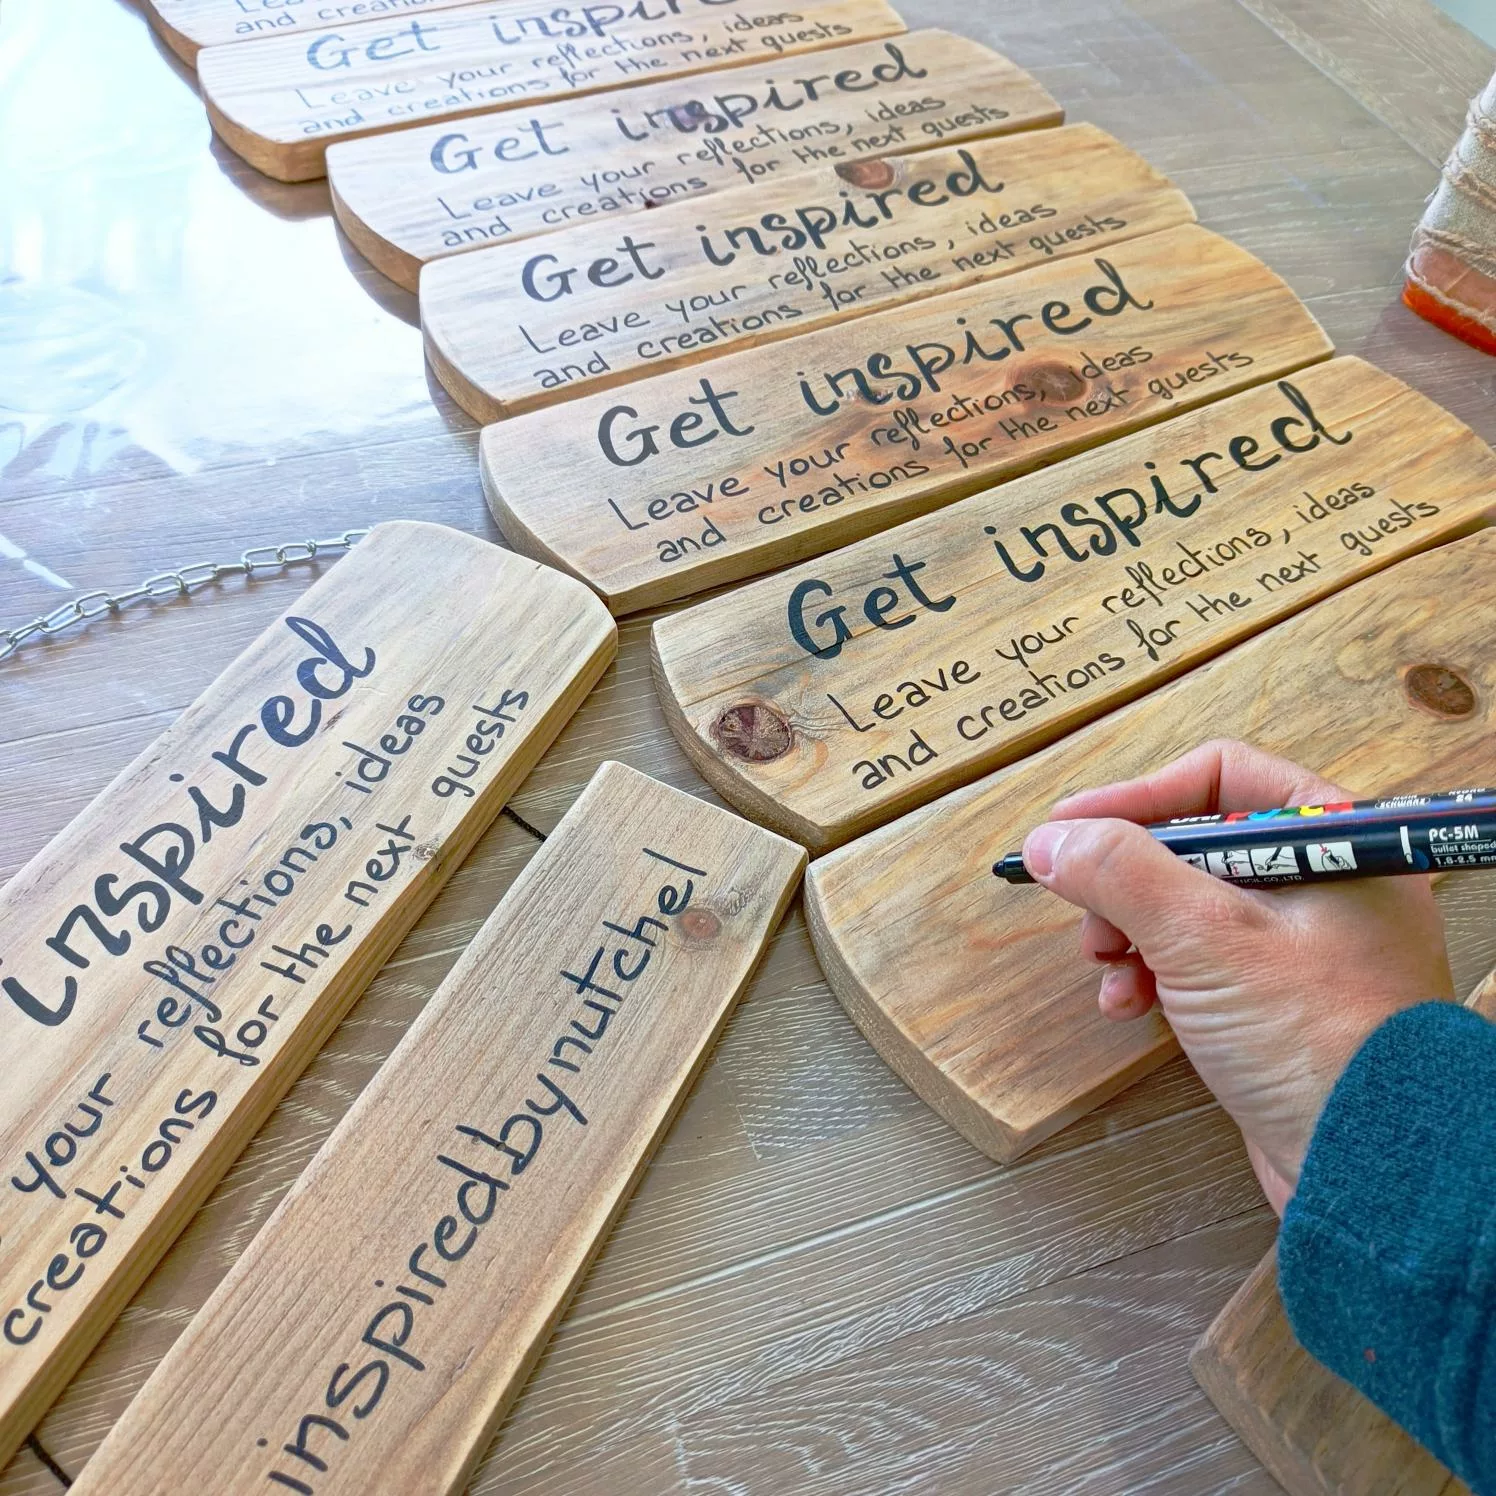 Le
and creations
Get inspire
Leave your reflections, ideas
and creations for the next guests
Get inspired
Leave your reflections, ideas
and creations for the next guests
Get inspired
Leave your reflections, ideas
and creations for the next guests
Get inspired
Leave your reflections, ideas
and creations for the next guests
Get inspired
Leave your reflections, ideas
and creations for the next guests
inspired
your reflections, ideas
creations for the next guests
inspiredbynutchel
PC-5M
bullet shaped
1.8-2.5 mm